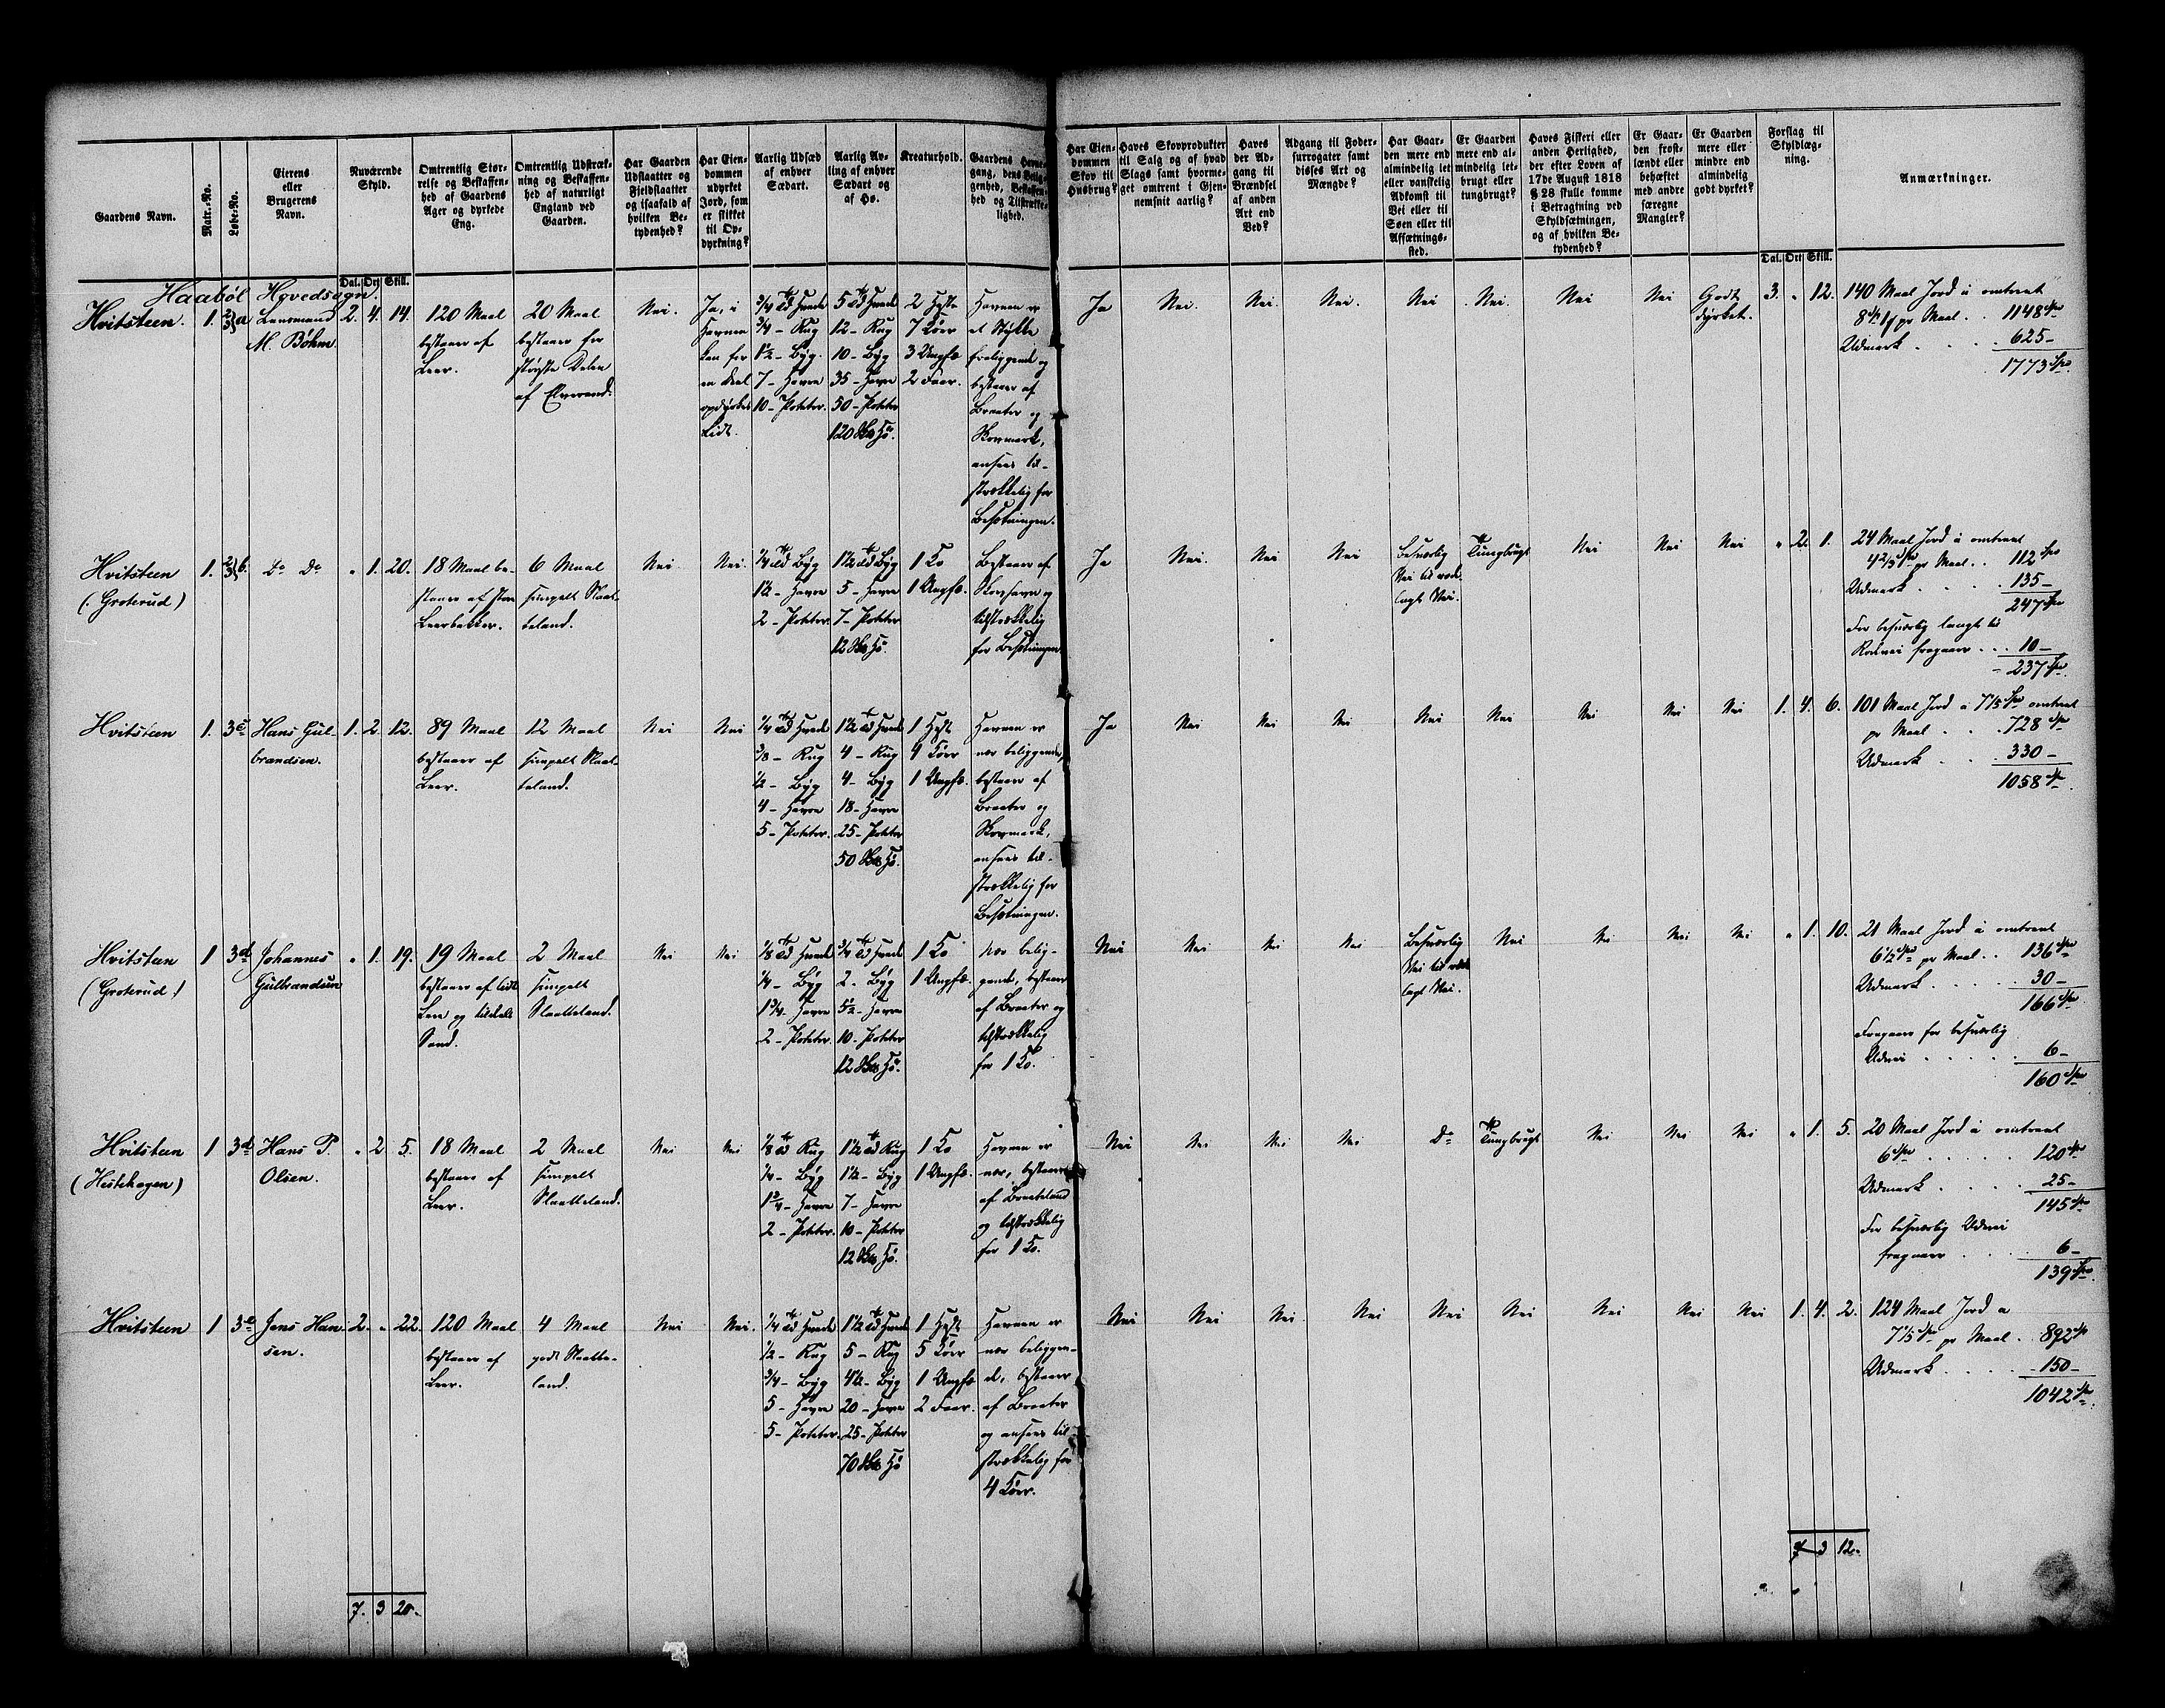 Gaardens Navn.
Matr.-No.
Løbe-No.
Eierens
eller
Brugerens
Navn.
Nuværende
Skyld.
Dal. Ort Skill.
Omtrentlig Stør-
relse og Beskaffen-
hed af Gaardens
Ager og dyrkede
Eng.
Omtrentlig Udstræk-
ning og Beskaffen-
hed af naturligt
England ved
Gaarden.
Har Gaarden
Udslaatter og
Fjeldslaatter
og isaafald af
hvilken Be-
tydenhed?
Har Eien-
dommen
udyrket
Jord, som
er skikket
til Op-
dyrkning?
Aarlig Udsæd
af enhver
Sædart.
Aarlig Av-
ling af enhver
Sædart og
af Hø.
Kreaturhold.
Gaardens Havne-
gang, dens Belig-
genhed, Beskaffen-
hed og Tilstrække-
lighed.
Har Eien-
dommen
Skov til
Husbrug?
Haves Skovprodukter
til Salg og af hvad
Slags samt hvorme-
get omtrent i Gjen-
nemsnit aarlig?
Haves
der Ad-
gang til
Brændsel
af anden
Art end
Ved?
Adgang til Foder-
surrogater samt
disses Art og
Mængde?
Har Gaar-
den mere end
almindelig let
eller vanskelig
Adkomst til
Vei eller til
Søen eller til
Afsætnings-
sted.
Er Gaarden
mere end al-
mindelig let-
brugt eller
tungbrugt?
Haves Fiskeri eller
anden Herlighed,
der efter Loven af
17de August 1818
§ 28 skulle komme
i Betragtning ved
Skyldsætningen,
og af hvilken Be-
tydenhed?
Er Gaar-
den frost-
lændt eller
behæftet
med andre
særegne
Mangler?
Er Gaarden
mere eller
mindre end
almindelig
godt dyrket?
Forslag til
Skyldlæg-
ning.
Dal. Ort Skill.
Anmærkninger.
Haabøl Hovedsogn.
Hvitsteen.
1.
2/3 a
Lensmand
M. Bøhm
2. 4. 14.
120 Maal
bestaaer af
Leer.
20 Maal
bestaaer for
største Delen
af Elvesand.
Nei.
Ja, i
Havnen
kan for
en Deel
opdyrkes
Lidt.
3/4 Td Hvede
3/4 - Rug
1 1/2 - Byg.
7 - Havre
10 - Poteter.
5 Td Hvede
12 - Rug
10 - Byg
35 - Havre
50 - Poteter
120 Hø.
2 Heste
7 Køer
3 Ungfæ.
2 Faar.
Havnen er
et Stykke
fraliggende og
bestaaer af
Braater og
Skovmark,
ansees til-
strækkelig for
Besætningen.
Ja
Nei.
Nei.
Nei.
Nei
Nei.
Nei
Nei
Godt
dyrket.
3. „ 12.
140 Maal Jord á omtrent
pr Maal . . 1148 Spd
Udmark . . . . 625 -
1773 Spd.
Hvitsteen
(Groterud)
1.
2/3 b.
Do Do
„ 1. 20.
18 Maal be-
staaer af
Leerbakker.
6 Maal
simpelt Slaat-
teland.
Nei
Nei.
1/4 Td Byg
1 1/2 - Havre
2 - Poteter.
1 1/2 Td Byg
5 - Havre
7 - Poteter
12 Hø.
1 Ko
1 Ungfæ.
Bestaaer af
Skovhavn og
tilstrækkelig
for Besætningen.
Ja
Nei.
Nei
Nei
Besværlig
Vei til rode-
lagt Vei.
Tungbrugt
Nei
Nei
Nei
„ 2. 1.
24 Maal Jord á omtrent
4 2/3 Spd pr Maal . . 112 Spd
Udmark . . . 135 -
247 Spd
For besværlig langt til
Rodevei fragaaer . . . 10 -
237 Spd.
Hvitsteen
1.
3 c
Hans Gul-
brandsen.
1. 2. 12.
89 Maal
bestaaer af
Leer.
12 Maal
simpelt Slaat-
teland.
Nei
Nei
1/4 Td Hvede
3/8 - Rug
1/2 - Byg
4 - Havre
5 - Poteter.
1 1/2 Td Hvede
4 - Rug
4 - Byg
18 - Havre
25 - Poteter
50 Hø.
1 Hest
4 Køer
1 Ungfæ.
Havnen er
nær beliggende,
bestaaer af
Braater og
Skovmark,
ansees til-
strækkelig for
Besætningen.
Ja
Nei
Nei
Nei
Nei
Nei
Nei
Nei
Nei
1. 4. 6.
101 Maal Jord á 7 1/5 Spd omtrent
pr Maal . . . 728 Spd
Udmark . . . 330 -
1058 Spd.
Hvitsteen
(Groterud)
1
3 d
Johannes
Gulbrandsen
„ 1. 19.
19 Maal
bestaaer af lidt
Leer og tildeels
Sand.
2 Maal
simpelt
Slaatteland.
Nei
Nei
1/8 Td Hvede
1/4 - Byg
1 3/4 - Havre
2 - Poteter.
3/4 Td Hvede
2 - Byg
5 1/2 - Havre
10 - Poteter
12 Hø.
1 Ko
1 Ungfæ.
Nær belig-
gende, bestaaer
af Braater og
tilstrækkelig
for 1 Ko.
Nei
Nei
Nei
Nei
Besværlig
Vei til rode-
lagt Vei.
Nei
Nei
Nei
Nei
„ 1. 10.
21 Maal Jord á omtrent
6 1/2 Spd pr Maal . . 136 Spd
Udmark . . . . . 30 -
166 Spd.
Fragaaer for besværlig
Udvei . . . . . 6 -
160 Spd
Hvitsteen
(Hestehagen)
1
3 d
Hans P.
Olsen.
„ 2 5.
18 Maal
bestaaer af
Leer.
2 Maal
simpelt
Slaatteland.
Nei
Nei
1/8 Td Rug
1/4 - Byg
1 3/4 - Havre
2 - Poteter.
1 1/2 Td Rug
1 1/2 - Byg
7 - Havre
10 - Poteter
12 Hø.
1 Ko
1 Ungfæ.
Havnen er
nær, bestaaer
af Braateland
og tilstrækkelig
for 1 Ko.
Nei
Nei
Nei
Nei
Do
Tungbrugt
Nei
Nei
Nei
„ 1. 5.
20 Maal Jord á omtrent
6 Spd . . . . . 120 Spd
Udmark . . . . 25 -
145 Spd
For besværlig Udvei
fragaaer . . . . 6 -
139 Spd.
Hvitsteen
1
3 e
Jens Han-
sen.
2. „ 22.
120 Maal
bestaaer af
Leer.
4 Maal
godt Slaatte-
land.
Nei
Nei.
1/4 Td Hvede
1/2 - Rug
3/4 - Byg
5 - Havre
5 - Poteter.
1 1/2 Td Hvede
5 - Rug
4 1/2 - Byg
20 - Havre
25 - Poteter
70 Hø
1 Hest
5 Køer
1 Ungfæ
2 Faar.
Havnen er
nær beliggen-
de, bestaaer
af Braater
og ansees til-
strækkelig for
4 Køer.
Nei
Nei
Nei
Nei
Nei
Nei
Nei
Nei
Nei
1. 4. 2.
124 Maal Jord a
7 1/5 Spd pr Maal . 892 Spd
Udmark . . . . 150 -
1042 Spd.
7. 3 20.
7 3 12.